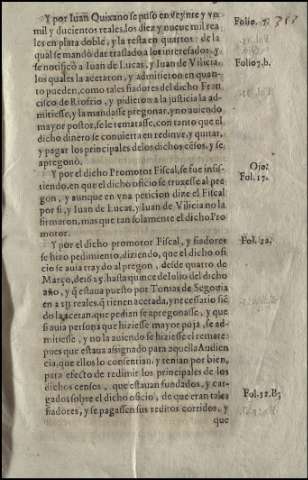 Y por Iuan Quixano se puso en veynte y vn
mil y ducientos reales, los diez y nueue mil rea
les en plata doble, y la resta en quartos: de la
qual se mandò dar traslado a los interesados, y
se notificò a Iuan de Lucas, y Iuan de Vilicia,
los quales la acetaron, y admitieron en quan-
to pueden, como tales fiadores del dicho Fran
cisco de Riofrio, y pidieron a la justicia la ad-
mitiesse, y la mandasse pregonar, y no auiendo
mayor postor, se le rematasse, con tanto que el
dicho dinero se conuierta en redimir, y quitar,
y pagar los principales de los dichos cesos, y se
apregonò.
Y por el dicho Promotor Fiscal, se fue insis-
tiendo, en que el dicho oficio se truxesse al pre
gon, y aunque en vna peticion dize el Fiscal
por si, y Iuan de Lucas, y Iuan de Vilicia no la
firmaron, mas que tan solamente el dicho Pro
motor.
Y por el dicho promotor Fiscal, y fiadores
se hizo pedimiento, diziendo, que el dicho ofi
cio se auia traydo al pregon, desde quatro de
Março, hasta quinze de Iulio del dicho
año, y q̃ estaua puesto por Tomas de Segouia
en reales, q̃ tienen acetada, y necessario siẽ
do la acetan, que pedian se apregonasse, y que
si auia persona que hiziesse mayor poja, se ad-
mitiesse, y no la auiendo se hiziesse el remate:
pues que estaua assignado para aquella Audien
cia, que ellos lo consentian, y tenian por bien,
para efecto de redimir los principales de los
dichos censos, que estauan fundados, y car-
gados sobre el dicho oficio, de que eran tales
fiadores, y se pagassen sus reditos corridos, y
que
Folio. 7.
Folio 7. b.
Ojo:
Fol. 17.
Fol. 22.
Fol. 32. B;